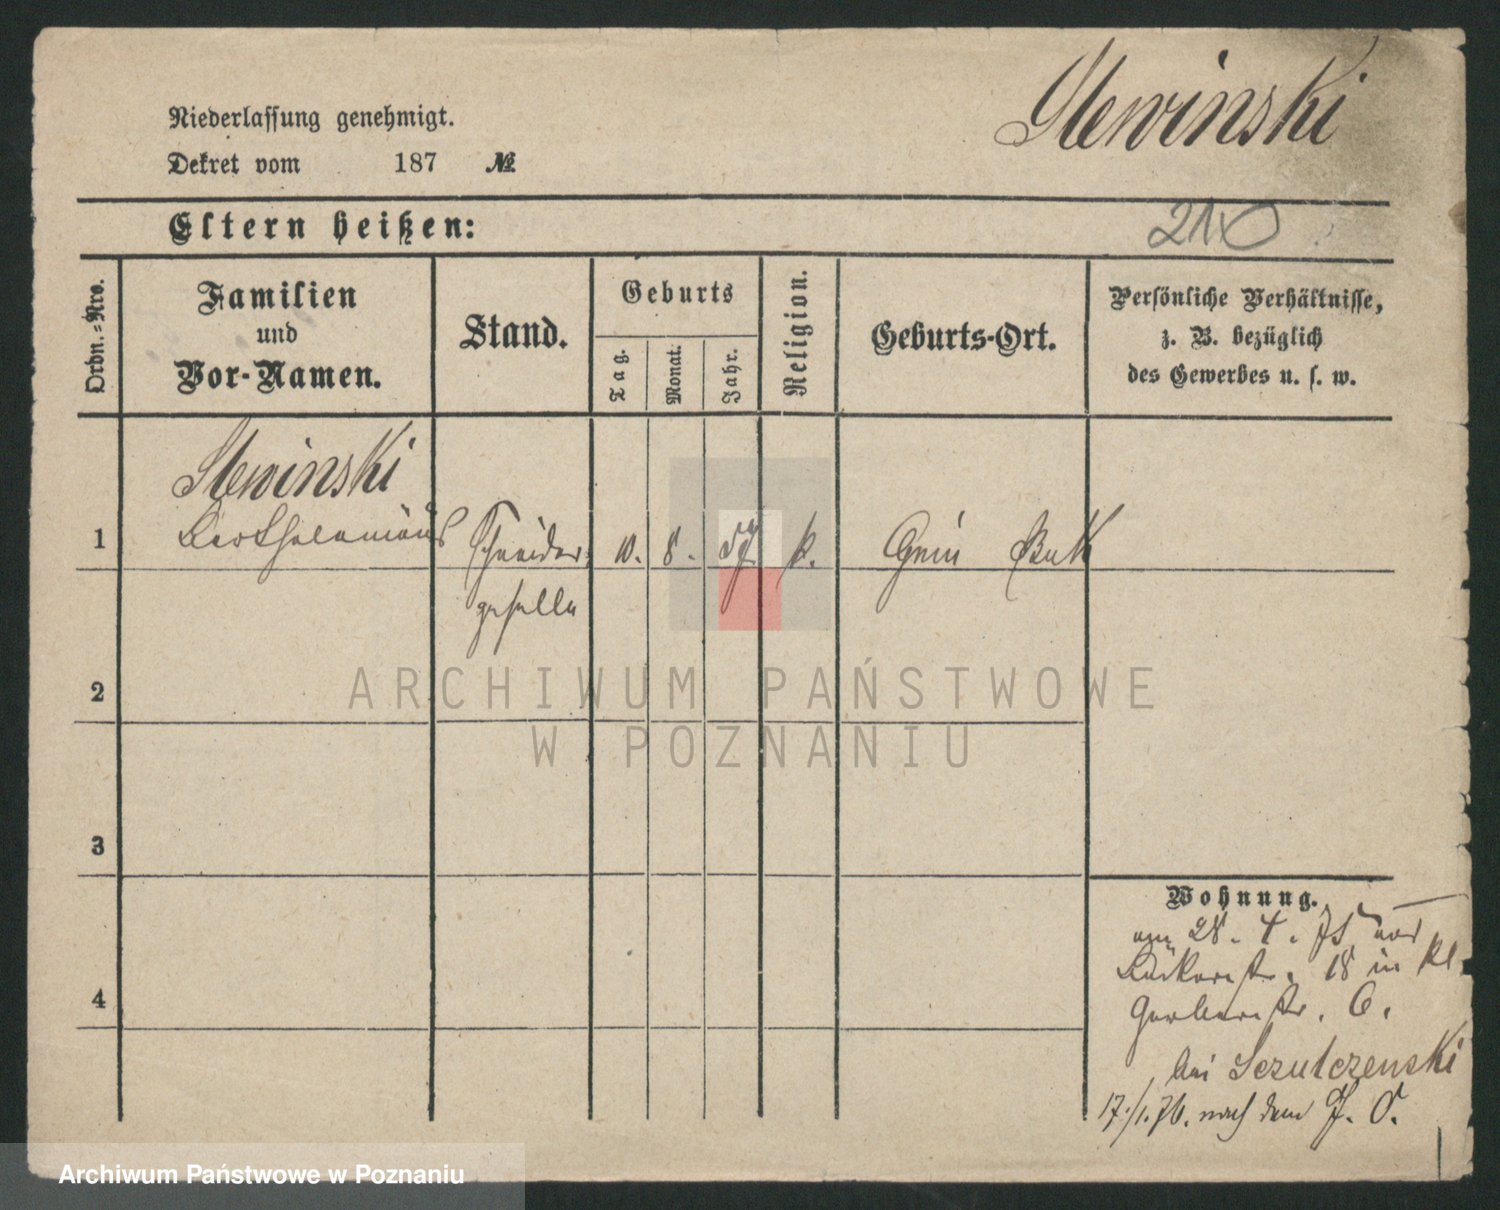 Stewinski
Niederlassung genehmigt.
Dekret vom 187 №
Eltern heißen:
210
Ordn.-Nro.
Familien
und
Vor-Namen.
Stand.
Geburts
Tag.
Monat.
Jahr.
Religion.
Geburts-Ort.
Persönliche Verhältnisse,
z. B. bezüglich
des Gewerbes u. s. w.
Stewinski
1 Bartholomäus Schneider 10. 8. 57 k. Gnin Buk
geselle
2
3
4
Wohnung.
am 28. 4. 75 von
Bäckerstr. 18 in kl.
Gerberstr. 6.
bei Szulczenski
17./1. 76. nach dem J. O.
ARCHIWUM PAŃSTWOWE
W POZNANIU
Archiwum Państwowe w Poznaniu